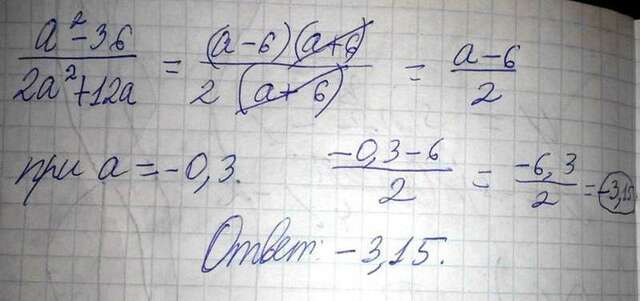 (a² - 36)/(2a² + 12a) = ((a - 6)(a + 6))/(2(a + 6)) = (a - 6)/2
при a = -0,3. (-0,3 - 6)/2 = (-6,3)/2 = -3,15
Ответ: -3,15.